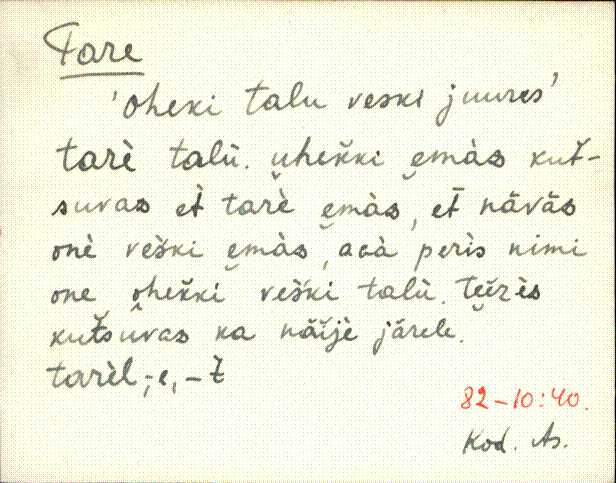 Tare
'oheki talu veski juures'
tarè talù. u̬hek̆ki e̬màs kut̆-
suvas et̀ tarè e̬màs, et̄ nāvās
onè ves̆ki e̬màs, acà peris nimi
one o̬hek̆ki ves̆ki talù. te̬i̬zès
kut̆suvas ka nāĭjè järele.
tarèl-,-e,-t
82-10:40.
Kod. As.